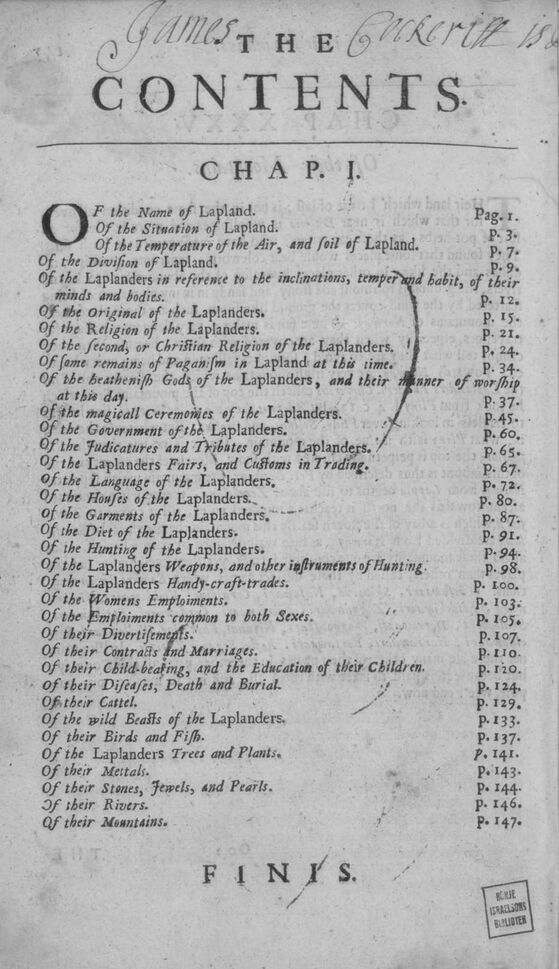 James Cockerill
THE
CONTENTS.
CHAP. I.
OF the Name of Lapland. Pag. 1.
Of the Situation of Lapland. p. 3.
Of the Temperature of the Air, and ſoil of Lapland. p. 7.
Of the Diviſion of Lapland. p. 9.
Of the Laplanders in reference to the inclinations, temper and habit, of their
minds and bodies. p. 12.
Of the Original of the Laplanders. p. 15.
Of the Religion of the Laplanders. p. 21.
Of the ſecond, or Chriſtian Religion of the Laplanders. p. 24.
Of ſome remains of Paganiſm in Lapland at this time. p. 34.
Of the heatheniſh Gods of the Laplanders, and their manner of worſhip
at this day. p. 37.
Of the magicall Ceremonies of the Laplanders. p. 45.
Of the Government of the Laplanders. p. 60.
Of the Judicatures and Tributes of the Laplanders. p. 65.
Of the Laplanders Fairs, and Cuſtoms in Trading. p. 67.
Of the Language of the Laplanders. p. 72.
Of the Houſes of the Laplanders. p. 80.
Of the Garments of the Laplanders. p. 87.
Of the Diet of the Laplanders. p. 91.
Of the Hunting of the Laplanders. p. 94.
Of the Laplanders Weapons, and other inſtruments of Hunting. p. 98.
Of the Laplanders Handy-craft-trades. p. 100.
Of the Womens Emploiments. p. 103.
Of the Emploiments common to both Sexes. p. 105.
Of their Divertiſements. p. 107.
Of their Contracts and Marriages. p. 110.
Of their Child-bearing, and the Education of their Children. p. 120.
Of their Diſeaſes, Death and Burial. p. 124.
Of their Cattel. p. 129.
Of the wild Beaſts of the Laplanders. p. 133.
Of their Birds and Fiſh. p. 137.
Of the Laplanders Trees and Plants. p. 141.
Of their Mettals. p. 143.
Of their Stones, Jewels, and Pearls. p. 144.
Of their Rivers. p. 146.
Of their Mountains. p. 147.
FINIS.
ISRAELSONS